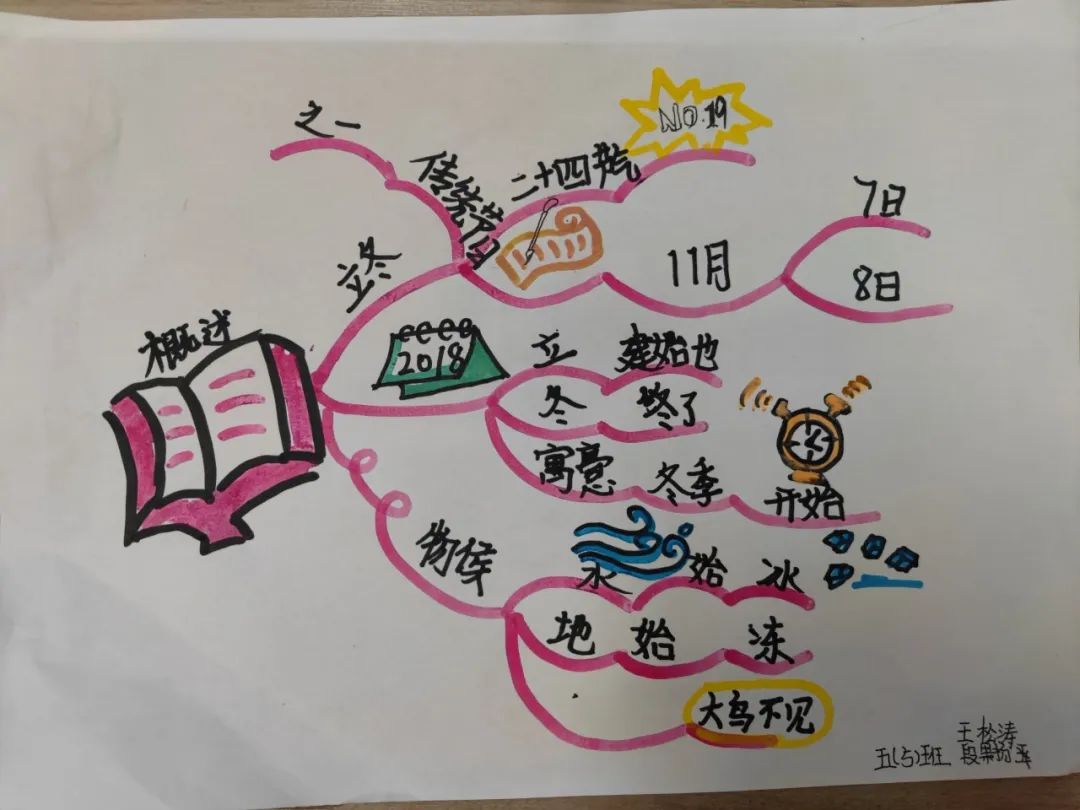 之一
传统节日
二十四节气
No.19
7日
11月
8日
立冬
概述
2018
立 建始也
冬 终了
寓意 冬季 开始
物候
水 始 冰
地 始 冻
大鸟不见
王松涛
五(5)班